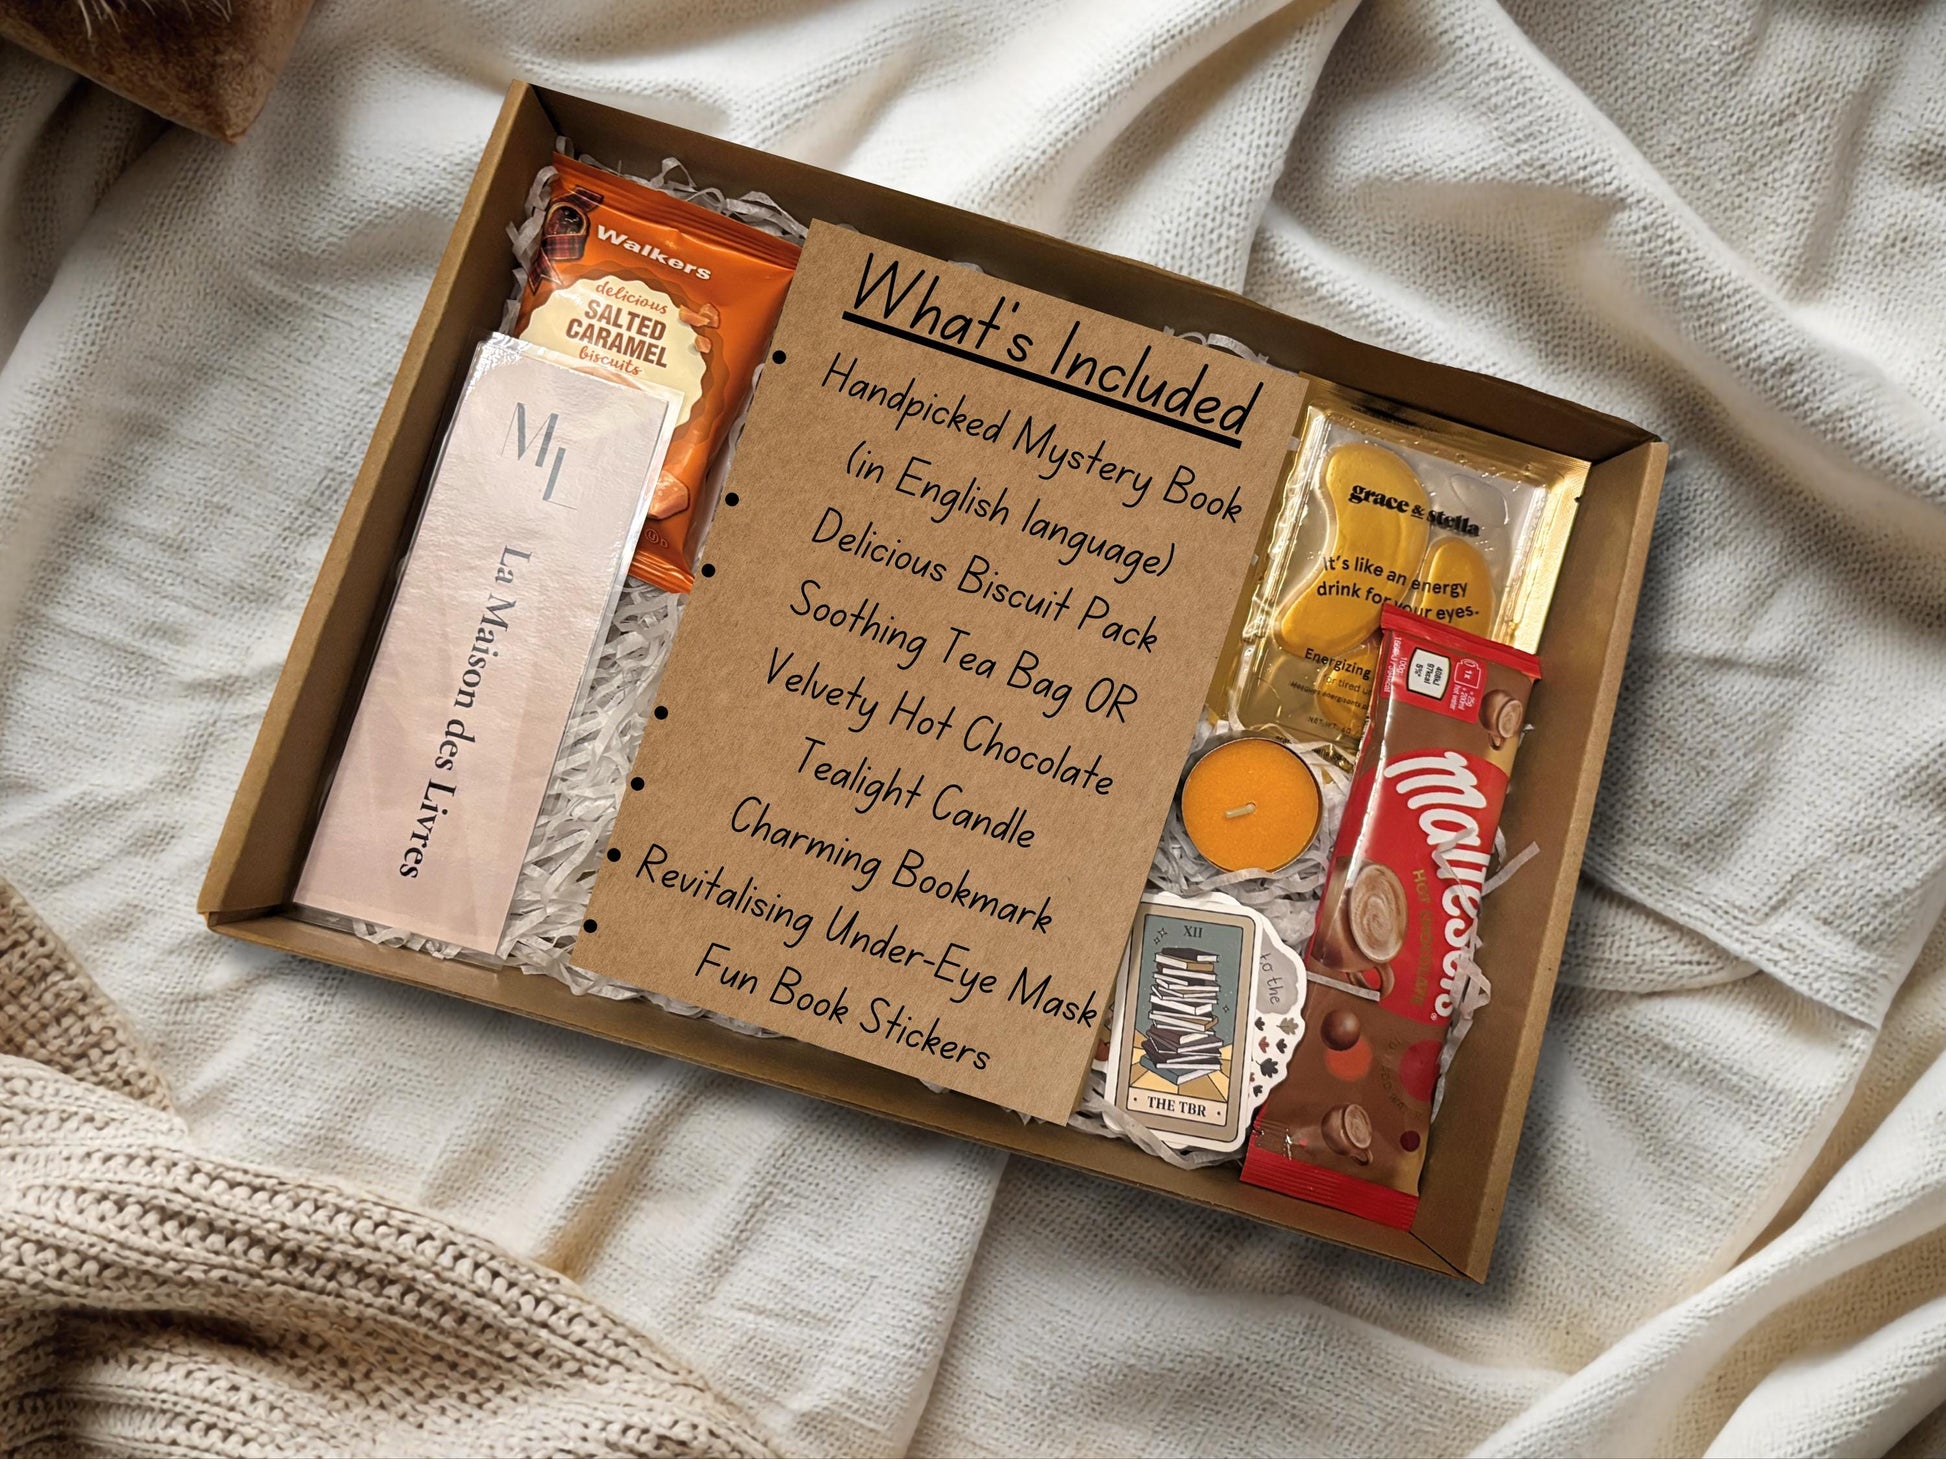 Walkers
delicious
SALTED
CARAMEL
biscuits
ML
La Maison des Livres
What's Included
• Handpicked Mystery Book
(in English language)
• Delicious Biscuit Pack
• Soothing Tea Bag OR
Velvety Hot Chocolate
• Tealight Candle
• Charming Bookmark
• Revitalising Under-Eye Mask
• Fun Book Stickers
grace & stella
It's like an energy
drink for your eyes.
Energizing
for tired
Maltesers
HOT
XII
THE TBR
to the